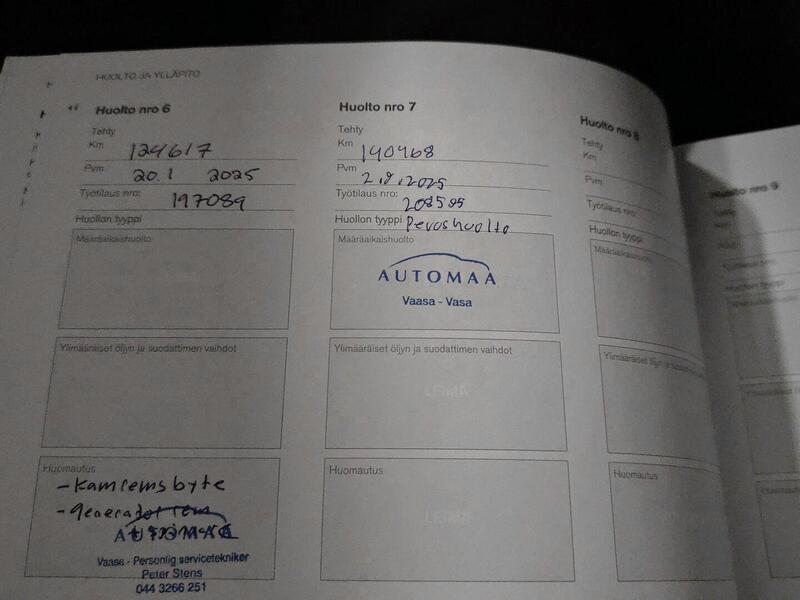 HUOLTO JA YLLÄPITO
Huolto nro 6
Tehty
Km 124617
Pvm 20.1 2025
Työtilaus nro: 197089
Huollon tyyppi
Määräaikaishuolto
Ylimääräiset öljyn ja suodattimen vaihdot
Huomautus
- Kamremsbyte
- Generatorrem
AUTOMAA
Vaasa - Personlig servicetekniker
Peter Stens
044 3266 251
Huolto nro 7
Tehty
Km 140468
Pvm 2.9.2025
Työtilaus nro: 208595
Huollon tyyppi Perushuolto
Määräaikaishuolto
AUTOMAA
Vaasa - Vasa
Ylimääräiset öljyn ja suodattimen vaihdot
LEIMA
Huomautus
LEIMA
Huolto nro 8
Tehty
Km
Pvm
Työtilaus nro:
Huollon tyyppi
Määräaikaishuolto
Ylimääräiset öljyn ja suodattimen
Huomautus
Huolto nro 9
Tehty
Työtilaus nro:
Huollon tyyppi